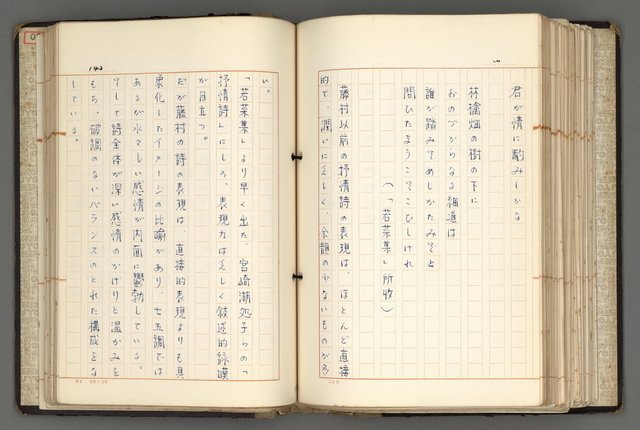 君が情に酌みしかな
林檎畑の樹の下に
おのづからなる細道は
誰が踏みそめしかたみぞと
問ひたまうこそこひしけれ
(「若菜集」所収)
藤村以前の抒情詩の表現は、ほとんど直接
的で、潤いに乏しく、余韻の少ないものが多
い。
「若菜集」より早く出た、宮崎湖処子らの「
抒情詩」にしろ、表現力は乏しく叙述的詠嘆
が目立つ。
だが藤村の詩の表現は、直接的表現よりも具
象化したイメージの比喩があり、七五調では
あるが水々しい感情が内面に鬱勃している。
そして詩全体が深い感情のかげりと温かみを
もち、破綻のないバランスのとれた構成をな
している。
142